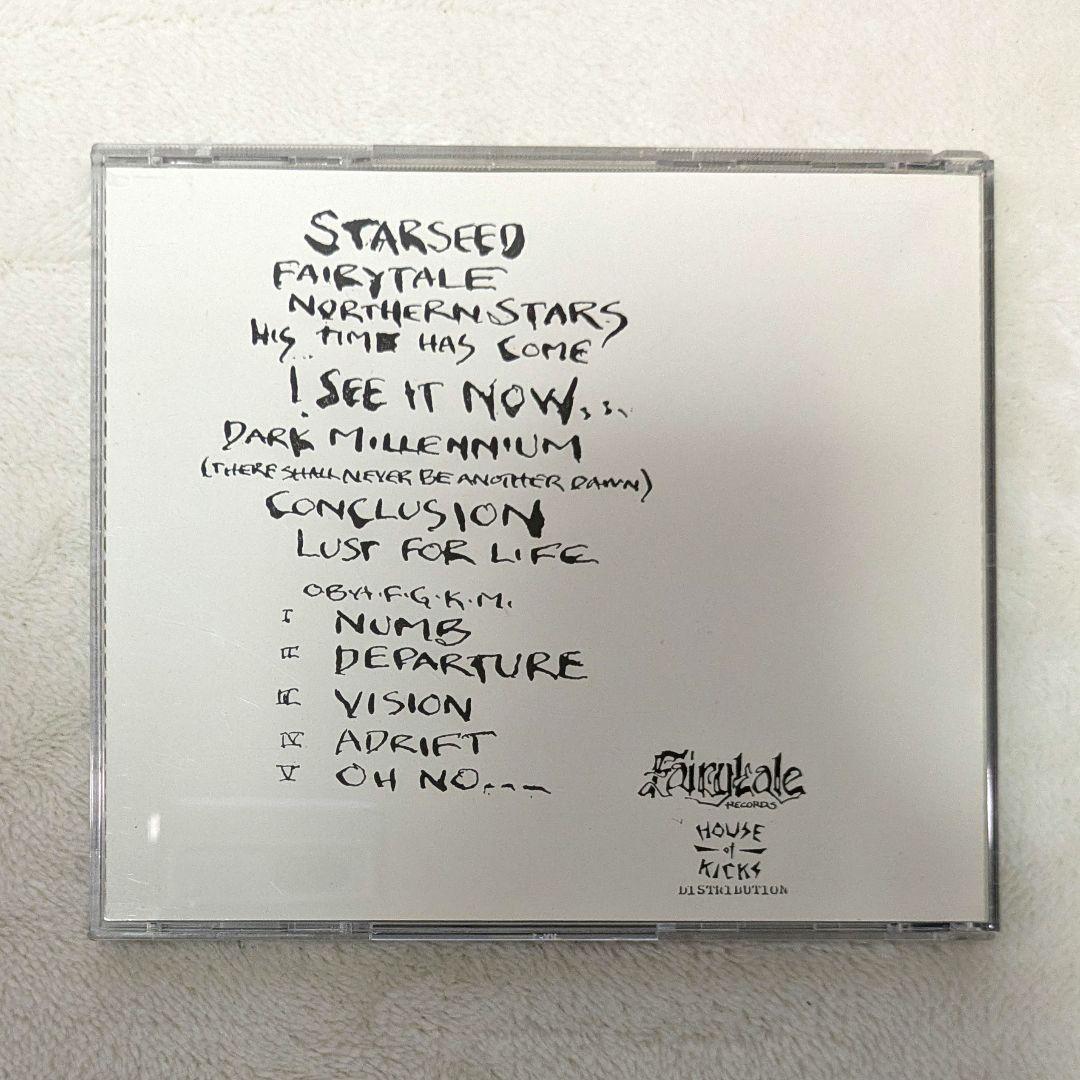 STARSEED
FAIRYTALE
NORTHERN STARS
HIS TIME HAS COME
I SEE IT NOW...
DARK MILLENNIUM
(THERE SHALL NEVER BE ANOTHER DAWN)
CONCLUSION
LUST FOR LIFE
O.B.A.F.G.K.M.
I NUMB
II DEPARTURE
III VISION
IV ADRIFT
V OH NO...
Fairytale
RECORDS
HOUSE
of
KICKS
DISTRIBUTION